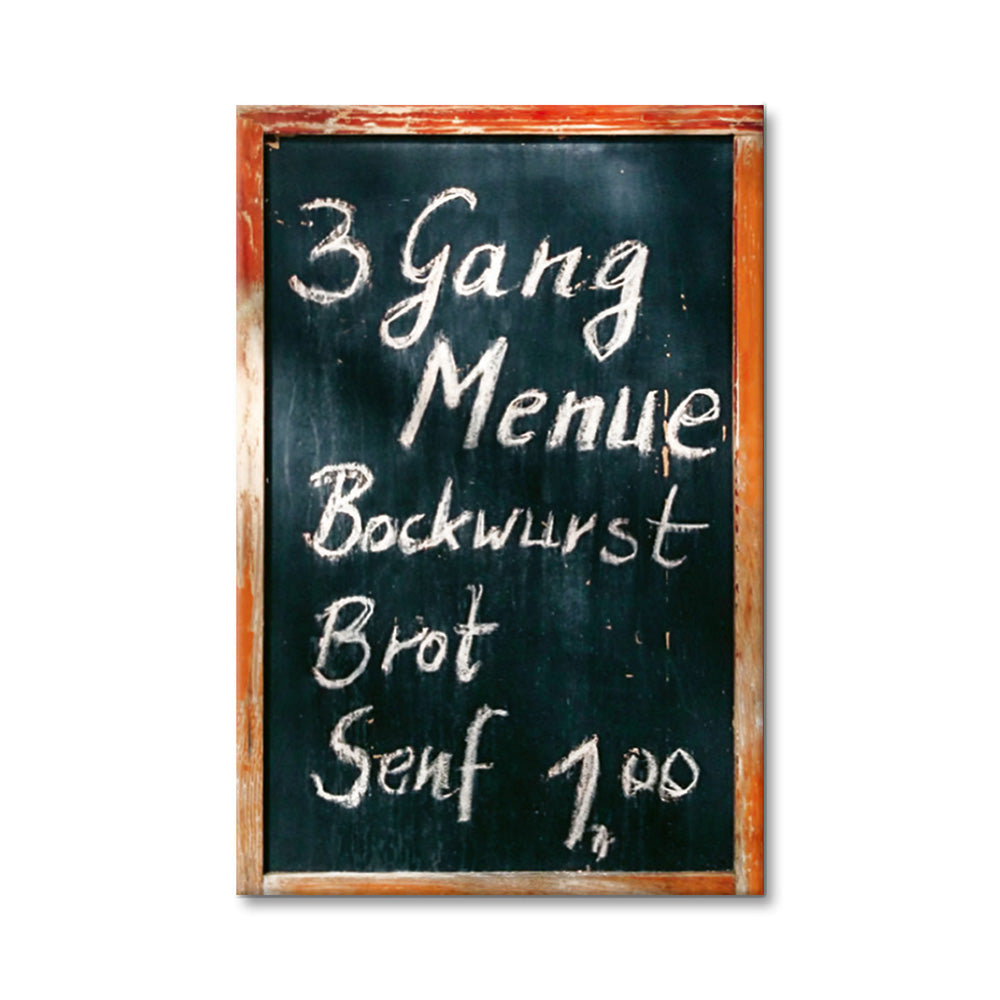 3 Gang
Menue
Bockwurst
Brot
Senf 1,00